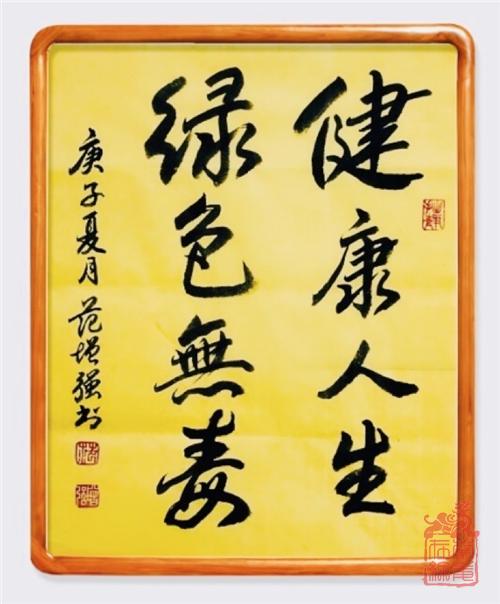 健康人生
绿色無毒
庚子夏月 范增强书